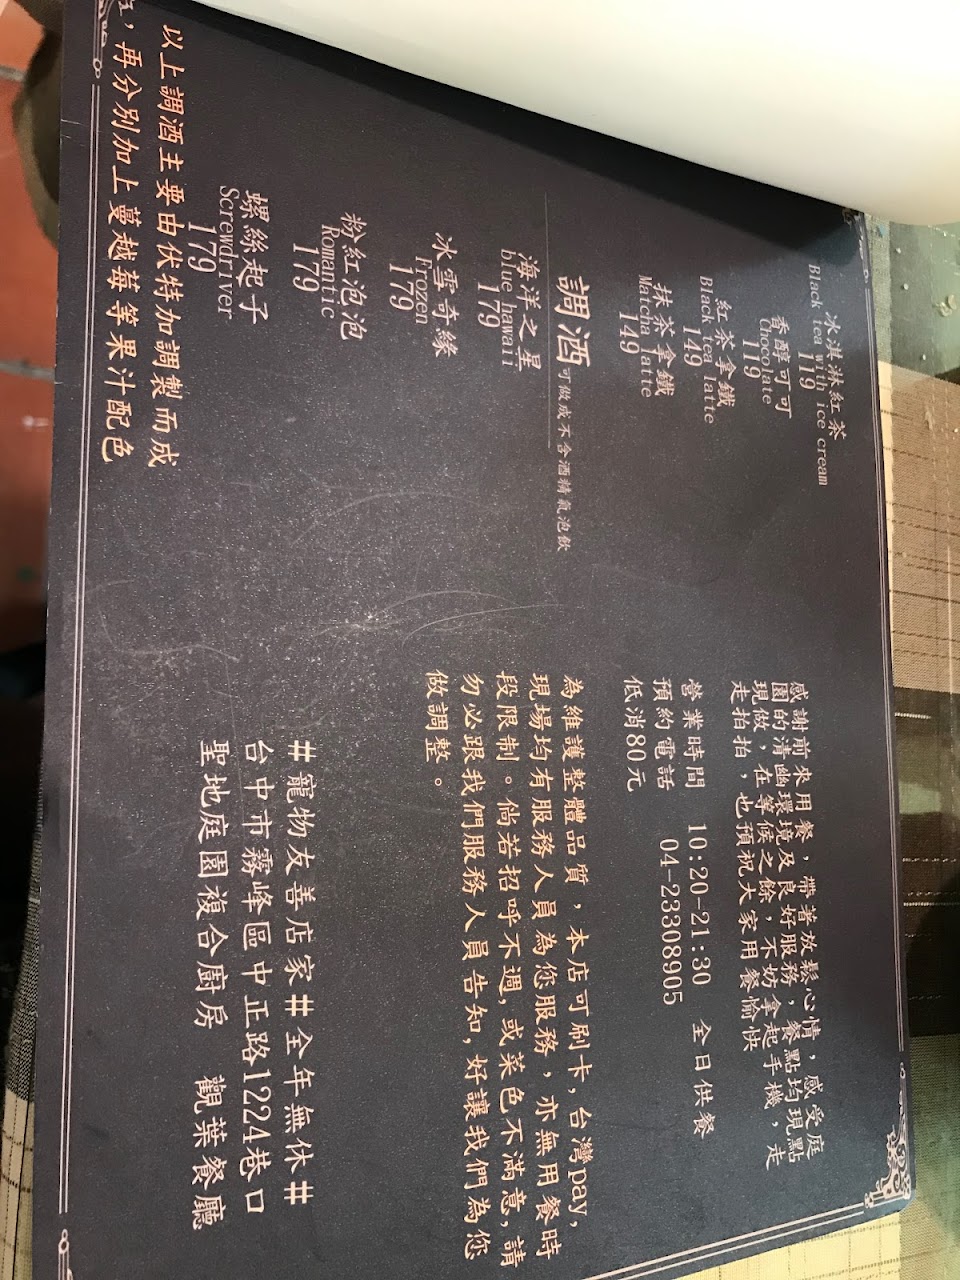 冰淇淋紅茶
Black tea with ice cream
119
香醇可可
Chocolate
119
紅茶拿鐵
Black tea latte
149
抹茶拿鐵
Matcha latte
149
調酒 可做成不含酒精氣泡飲
海洋之星
blue hawaii
179
冰雪奇緣
Frozen
179
粉紅泡泡
Romantic
179
螺絲起子
Screwdriver
179
以上調酒主要由伏特加調製而成
，再分別加上蔓越莓等果汁配色
感謝前來用餐，帶著放鬆心情，感受庭
園的清幽環境及良好服務，餐點均現點
現做，在等候之餘，不妨拿起手機，走
走拍拍，也預祝大家用餐愉快
營業時間 10:20-21:30 全日供餐
預約電話 04-23308905
低消80元
為維護整體品質，本店可刷卡，台灣pay，
現場均有服務人員為您服務，亦無用餐時
段限制。倘若招呼不週，或菜色不滿意，請
勿必跟我們服務人員告知，好讓我們為您
做調整。
#寵物友善店家##全年無休##
台中市霧峰區中正路1224巷口
聖地庭園複合廚房 觀葉餐廳